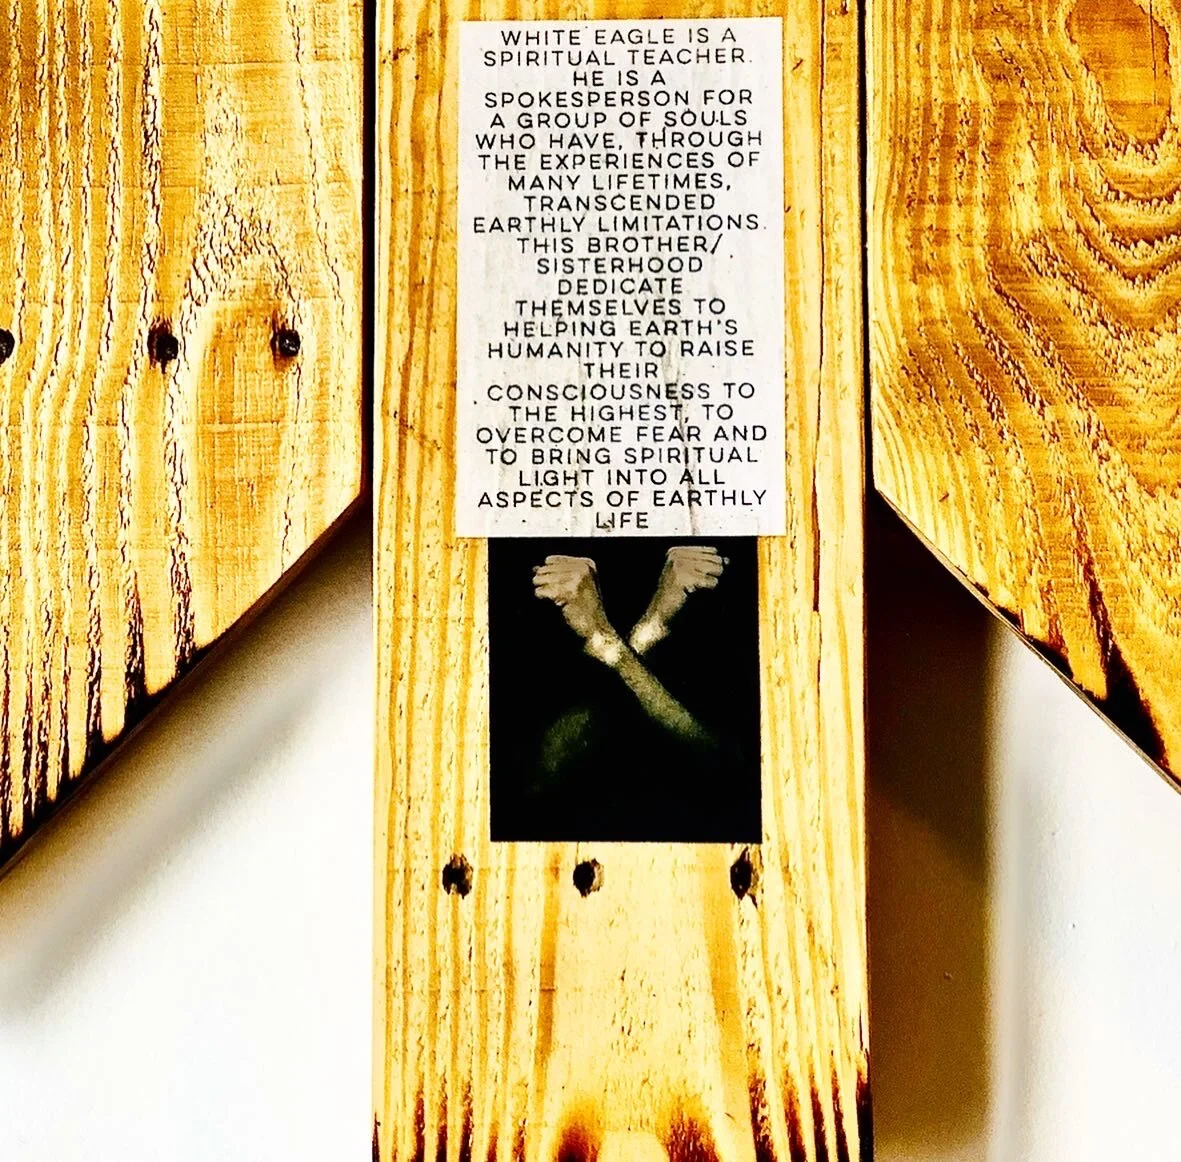 WHITE EAGLE IS A
SPIRITUAL TEACHER.
HE IS A
SPOKESPERSON FOR
A GROUP OF SOULS
WHO HAVE, THROUGH
THE EXPERIENCES OF
MANY LIFETIMES,
TRANSCENDED
EARTHLY LIMITATIONS.
THIS BROTHER/
SISTERHOOD
DEDICATE
THEMSELVES TO
HELPING EARTH'S
HUMANITY TO RAISE
THEIR
CONSCIOUSNESS TO
THE HIGHEST, TO
OVERCOME FEAR AND
TO BRING SPIRITUAL
LIGHT INTO ALL
ASPECTS OF EARTHLY
LIFE